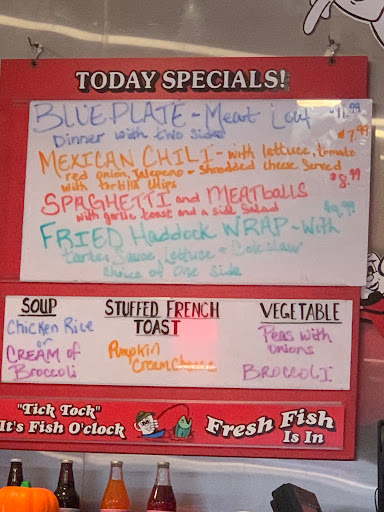 TODAY SPECIALS!
BLUE PLATE - Meat Loaf $11.99
Dinner with two sides
MEXICAN CHILI - with lettuce, tomato $7.99
red onion, Jalepeno + shredded cheese served
with tortilla chips $8.99
SPAGHETTI and MEATballs
with garlic toast and a side salad $9.99
FRIED Haddock WRAP - with
tartar sauce, lettuce + Cole slaw
choice of one side
SOUP
Chicken Rice
or
CREAM of
Broccoli
STUFFED FRENCH
TOAST
Pumpkin
Cream Cheese
VEGETABLE
Peas with
onions
BROCCOLI
"Tick Tock"
It's Fish O'clock
Fresh Fish
Is In